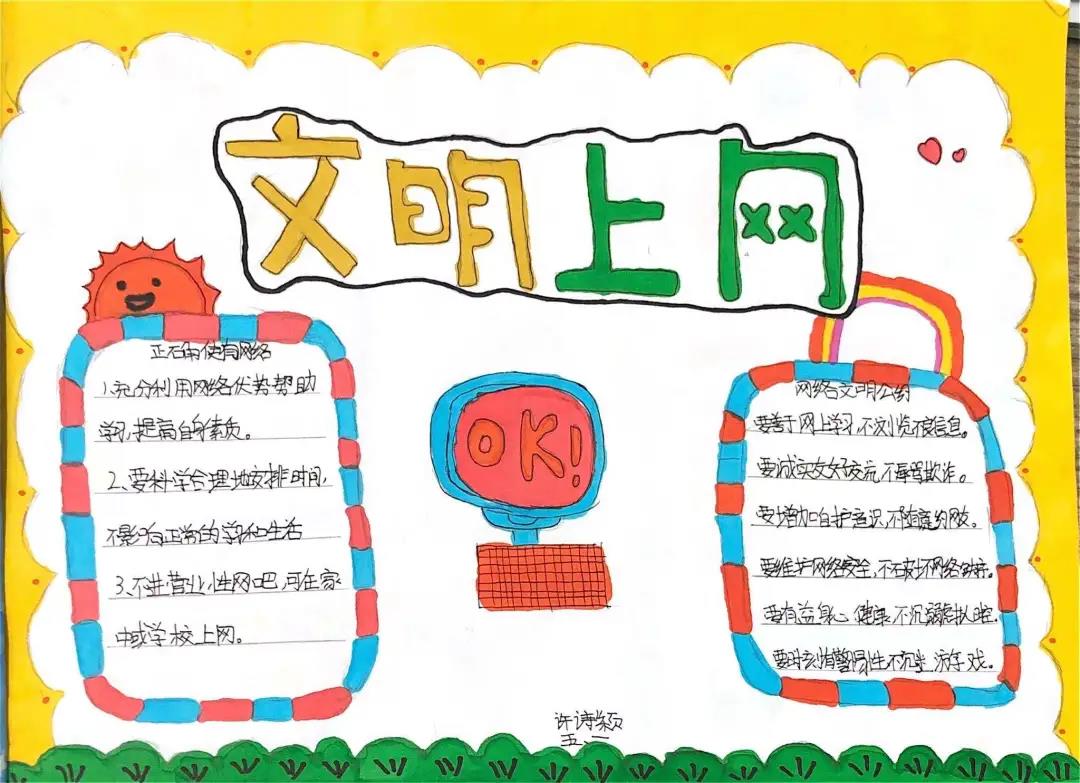 文明上网
正确使有网络
1.充分利用网络优势帮助
学习,提高自身素质。
2、要科学合理地安排时间,
不影向正常的学和生活
3、不进营业性网吧,可在家
中或学校上网。
OK!
网络文明公约
要善于网上学习,不浏览不良信息。
要诚实友好交流,不辱骂欺诈。
要增加自护意识,不随意约友。
要维护网络安全,不破坏网络秩序。
要有益身心健康,不沉溺
要时刻有警易性不沉 游子戏。
许诗颖
五、二